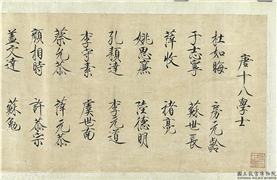 唐十八學士
杜如晦 房元齡
于志寧 蘇世長
薛收 褚亮
姚思廉 陸德明
孔穎達 李元道
李守素 虞世南
蔡允恭 薛元敬
顏相時 許敬宗
蓋文達 蘇勗
國立故宮博物院